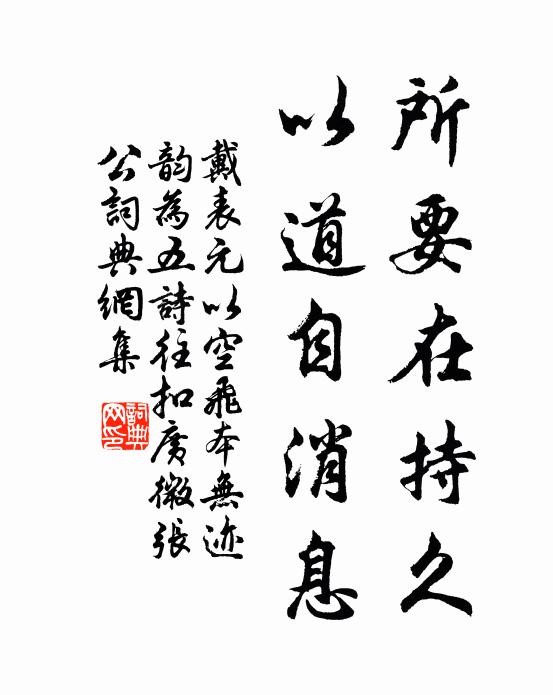 所要在持久
以道自消息
戴表元以空飛本無迹
韵為五詩往扣廣微張
公詞典網集
詞典
网印